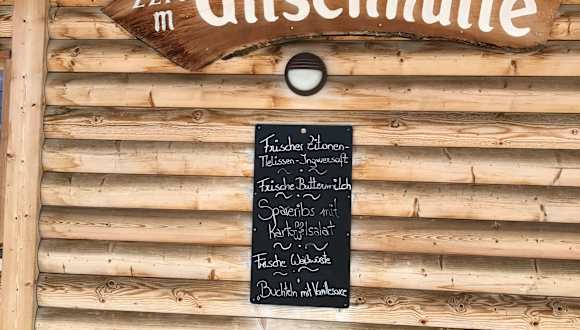 m
Gitschhütte
Frischer Zitonen-
Melissen-Ingwersaft
Frische Buttermilch
Spareribs mit
Kartoffelsalat
Frische Weißwürste
"Buchteln mit Vanillesauce